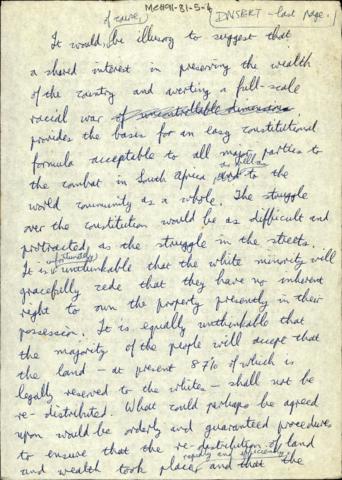 MCH91-81-5-6
of course, [INSERT - last page.]
It would be illusory to suggest that
a shared interest in preserving the wealth
of the country and averting a full-scale
racial war of uncontrollable dimensions
provides the basis for an easy constitutional
formula acceptable to all major parties to
the combat in South Africa as well as to the
world community as a whole. The struggle
over the constitution would be as difficult and
protracted as the struggle in the streets.
It is unfortunately unthinkable that the white minority will
gracefully cede that they have no inherent
right to own the property presently in their
possession. It is equally unthinkable that
the majority of the people will accept that
the land – at present 87% of which is
legally reserved to the whites – shall not be
re-distributed. What could perhaps be agreed
upon would be orderly and guaranteed procedures
to ensure that the re-distribution of land
and wealth took place rapidly and efficiently and that the